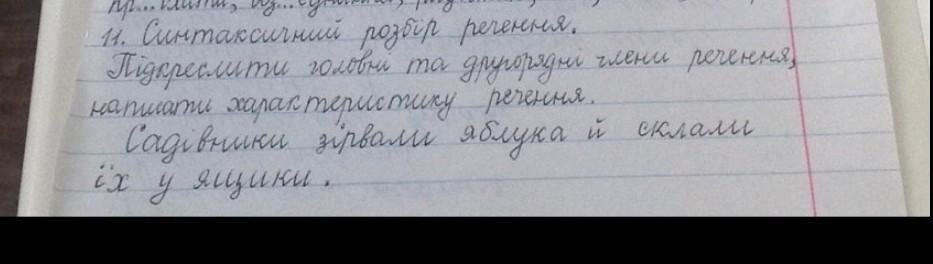 11. Синтаксичний розбір речення.
Підкреслити головні та другорядні члени речення,
написати характеристику речення.
Садівники зірвали яблука й склали
їх у ящики.